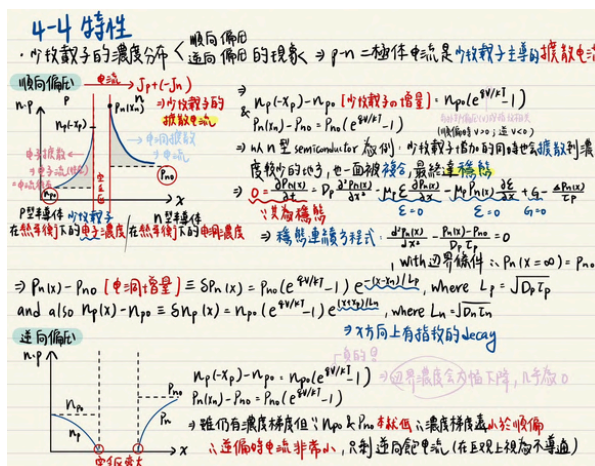 4-4 特性
・少收載子的濃度分布 < 順向偏压 逆向偏压 的現象 ⇒ p-n 二極体电流是少收載子主導的擴散电流
順向偏压
电流 → Jp+(-Jn)
n.p
P
n
Pn(xn)
np(-xp)
⇒少收載子的
擴散电流
npo
Pno
x
P型半導体 少收載子
n型半導体
在熱平衡下的电子濃度
在熱平衡下的电洞濃度
⇒
& np(-xp)-npo [少收載子の增量] = npo(e^qV/kT -1)
Pn(xn)-Pno = Pno(e^qV/kT -1)
(順偏時 V>0; 逆 V<0)
⇒ 以 n 型 semiconductor 為例: 少收載子增加的同時也会擴散到濃
度較少的地方, 也一面被複合, 最終達穩態
⇒ 0 = ∂Pn(x)/∂t = Dp ∂²Pn(x)/∂x² - Mp ξ ∂Pn(x)/∂x - Mp Pn(x) ∂ξ/∂x + G - ΔPn(x)/τp
∵为穩態
ξ=0
ξ=0
G=0
⇒ 穩態連續方程式: d²Pn(x)/dx² - Pn(x)-Pno/Dpτp = 0
, with 边界條件 ∴ Pn(x=∞) = Pno
⇒ Pn(x)-Pno [电洞增量] ≡ δPn(x) = Pno(e^qV/kT -1) e^-(x-xn)/Lp, where Lp = √Dpτp
and also np(x)-npo ≡ δnp(x) = npo(e^qV/kT -1) e^(x+xp)/Ln, where Ln = √Dnτn
⇒ x方向上有指数的decay
逆向偏压
n.p
npo
np
Pno
Pn
x
空乏区变大
负的
np(-xp)-npo = npo(e^qV/kT -1)
Pn(xn)-Pno = Pno(e^qV/kT -1)
⇒ 边界濃度会大幅下降, 几乎為 0
⇒ 雖仍有濃度梯度但∵npo & Pno 本就低∴濃度梯度遠小於順偏
∴逆偏時电流非常小, 只剩逆向飽和电流 (在巨观上視為不導通)